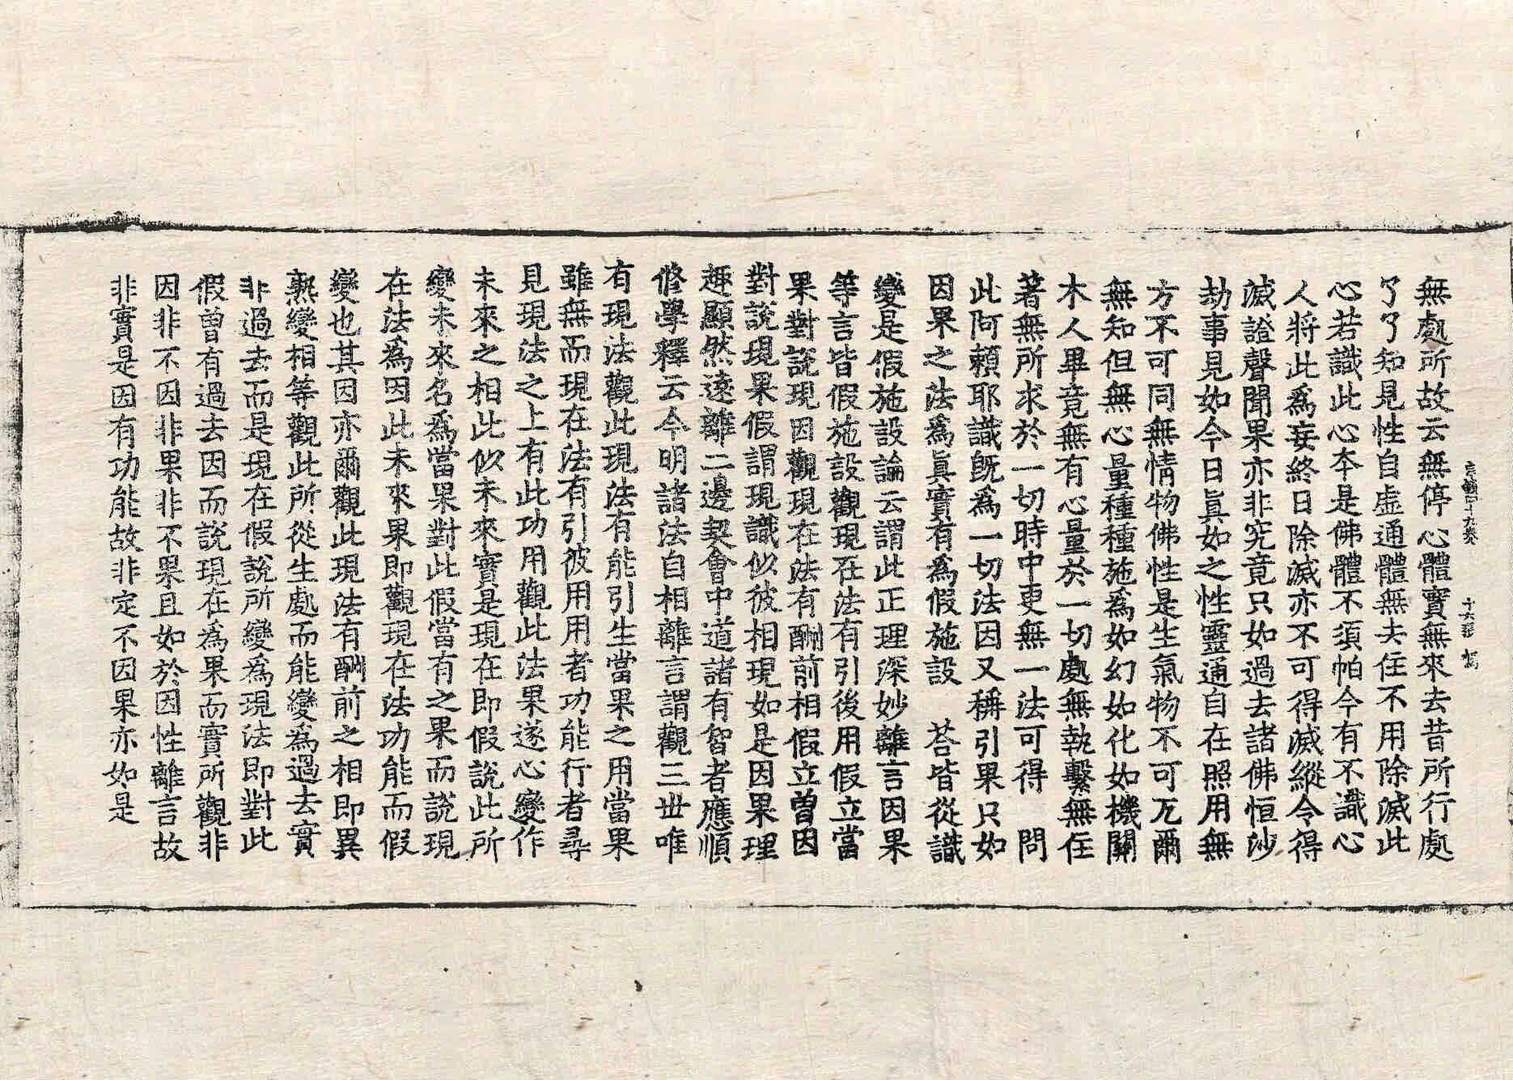 無處所故云無停心體實無來去昔所行處
了了知見性自虛通體無去住不用除滅此
心若識此心本是佛體不須怕今有不識心
人將此爲妄終日除滅亦不可得滅縱令得
滅證聲聞果亦非究竟只如過去諸佛恒沙
劫事見如今日眞如之性靈通自在照用無
方不可同無情物佛性是生氣物不可兀爾
無知但無心量種種施爲如幻如化如機關
木人畢竟無有心量於一切處無執繫無住
著無所求於一切時中更無一法可得　問
此阿賴耶識旣爲一切法因又稱引果只如
因果之法爲眞實有爲假施設　荅皆從識
變是假施設論云謂此正理深妙離言因果
等言皆假施設觀現在法有引後用假立當
果對說現因觀現在法有酬前相假立曽因
對說現果假謂現識似彼相現如是因果理
趣顯然遠離二邊契會中道諸有智者應順
修學釋云今明諸法自相離言謂觀三世唯
有現法觀此現法有能引生當果之用當果
雖無而現在法有引彼用用者功能行者尋
見現法之上有此功用觀此法果遂心變作
未來之相此似未來實是現在即假說此所
變未來名爲當果對此假當有之果而說現
在法爲因此未來果即觀現在法功能而假
變也其因亦爾觀此現法有酬前之相即異
熟變相等觀此所從生處而能變爲過去實
非過去而是現在假說所變爲現法即對此
假曽有過去因而說現在爲果而實所觀非
因非不因非果非不果且如於因性離言故
非實是因有功能故非定不因果亦如是
十九卷　十六張